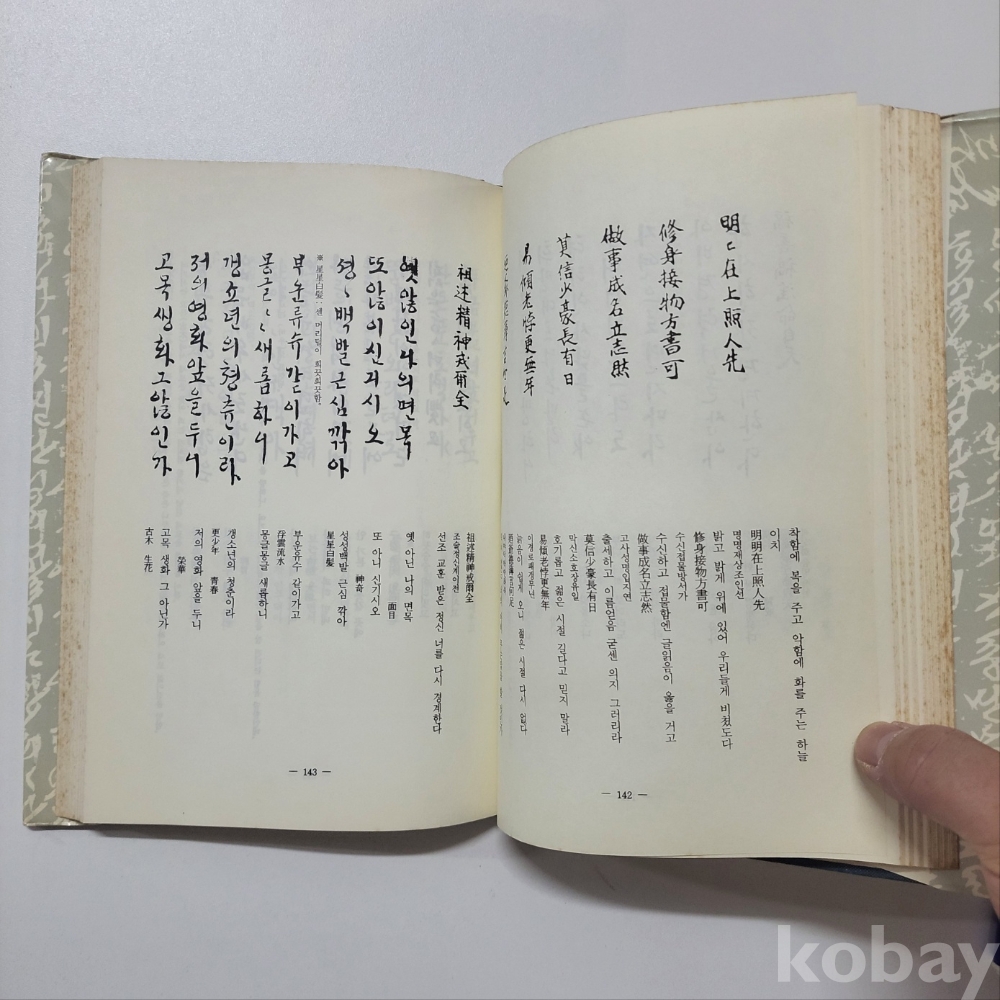 明〻在上照人先
修身接物方書可
做事成名立志然
莫信少豪長有日
易傾老悖更無年
착함에 복을 주고 악함에 화를 주는 하늘
이치
明明在上照人先
명명재상조인선
밝고 밝게 위에 있어 우리들게 비쳤도다
修身接物方書可
수신접물방서가
수신하고 접물함엔 글읽음이 옳을 거고
做事成名立志然
고사성명입지연
출세하고 이름얻음 굳센 의지 그러리라
莫信少豪長有日
막신소호장유일
호기롭고 젊은 시절 길다고 믿지 말라
易傾老悖更無年
이경로패갱무년
늙음이 쉽게 오니 젊은 시절 다시 없다
— 142 —
祖述精神戒爾全
옛않인나의면목
또않이신긔시오
셩〻백발근심깎아
※ 星星白髮: 센 머리털이 희끗희끗함.
부운류슈갇이가고
몽글〻새름하니
갱쇼년의쳥츈이라
저의영화앞을두니
고목쌩화그않인가
祖述精神戒爾全
조술정신계이전
선조 교훈 받은 정신 너를 다시 경계한다
옛 아닌 나의 면목
面目
또 아니 신기시오
神奇
성성백발 근심 깎아
星星白髮
부운유수 같이가고
浮雲流水
몽글몽글 새름하니
갱소년의 청춘이라
更少年 青春
저의 영화 앞을 두니
榮華
고목 생화 그 아닌가
古木 生花
— 143 —
kobay